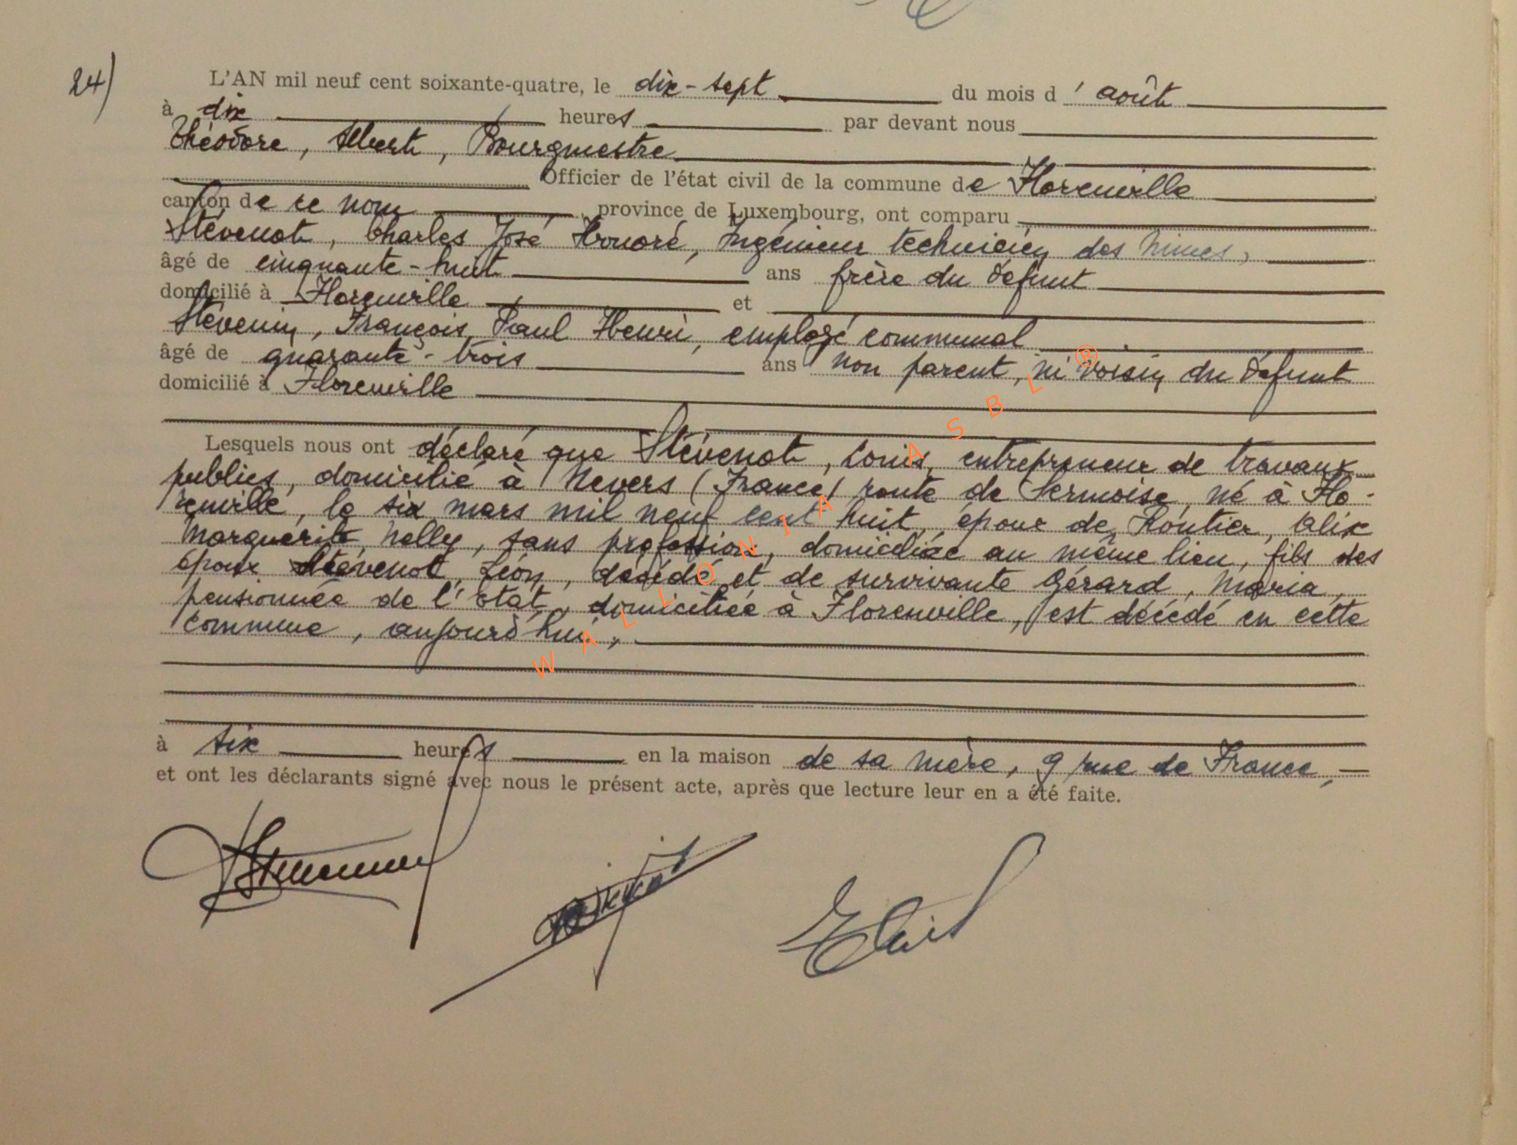 24)
L'AN mil neuf cent soixante-quatre, le dix-sept du mois d'août
à dix heures par devant nous
Théodore, Albert, Bourgmestre
Officier de l'état civil de la commune de Florenville
canton de ce nom province de Luxembourg, ont comparu
Stévenot, Charles José Honoré, Ingénieur technicien des Mines,
âgé de cinquante-huit ans frère du défunt
domicilié à Florenville et
Stévenin, François Paul Henri, employé communal
âgé de quarante-trois ans non parent, ni voisin du défunt
domicilié à Florenville
Lesquels nous ont déclaré que Stévenot, Louis, entrepreneur de travaux
publics, domicilié à Nevers (France) route de Sermoise, né à Flo-
renville, le six mars mil neuf cent huit, époux de Routier, Alix
Marguerite Nelly, sans profession, domiciliée au même lieu, fils des
époux Stévenot, Léon, décédé et de survivante Gérard, Maria,
pensionnée de l'Etat, domiciliée à Florenville, est décédé en cette
commune, aujourd'hui,
à six heures en la maison de sa mère, 9 rue de France,
et ont les déclarants signé avec nous le présent acte, après que lecture leur en a été faite.
WALLONIA ASBL ®